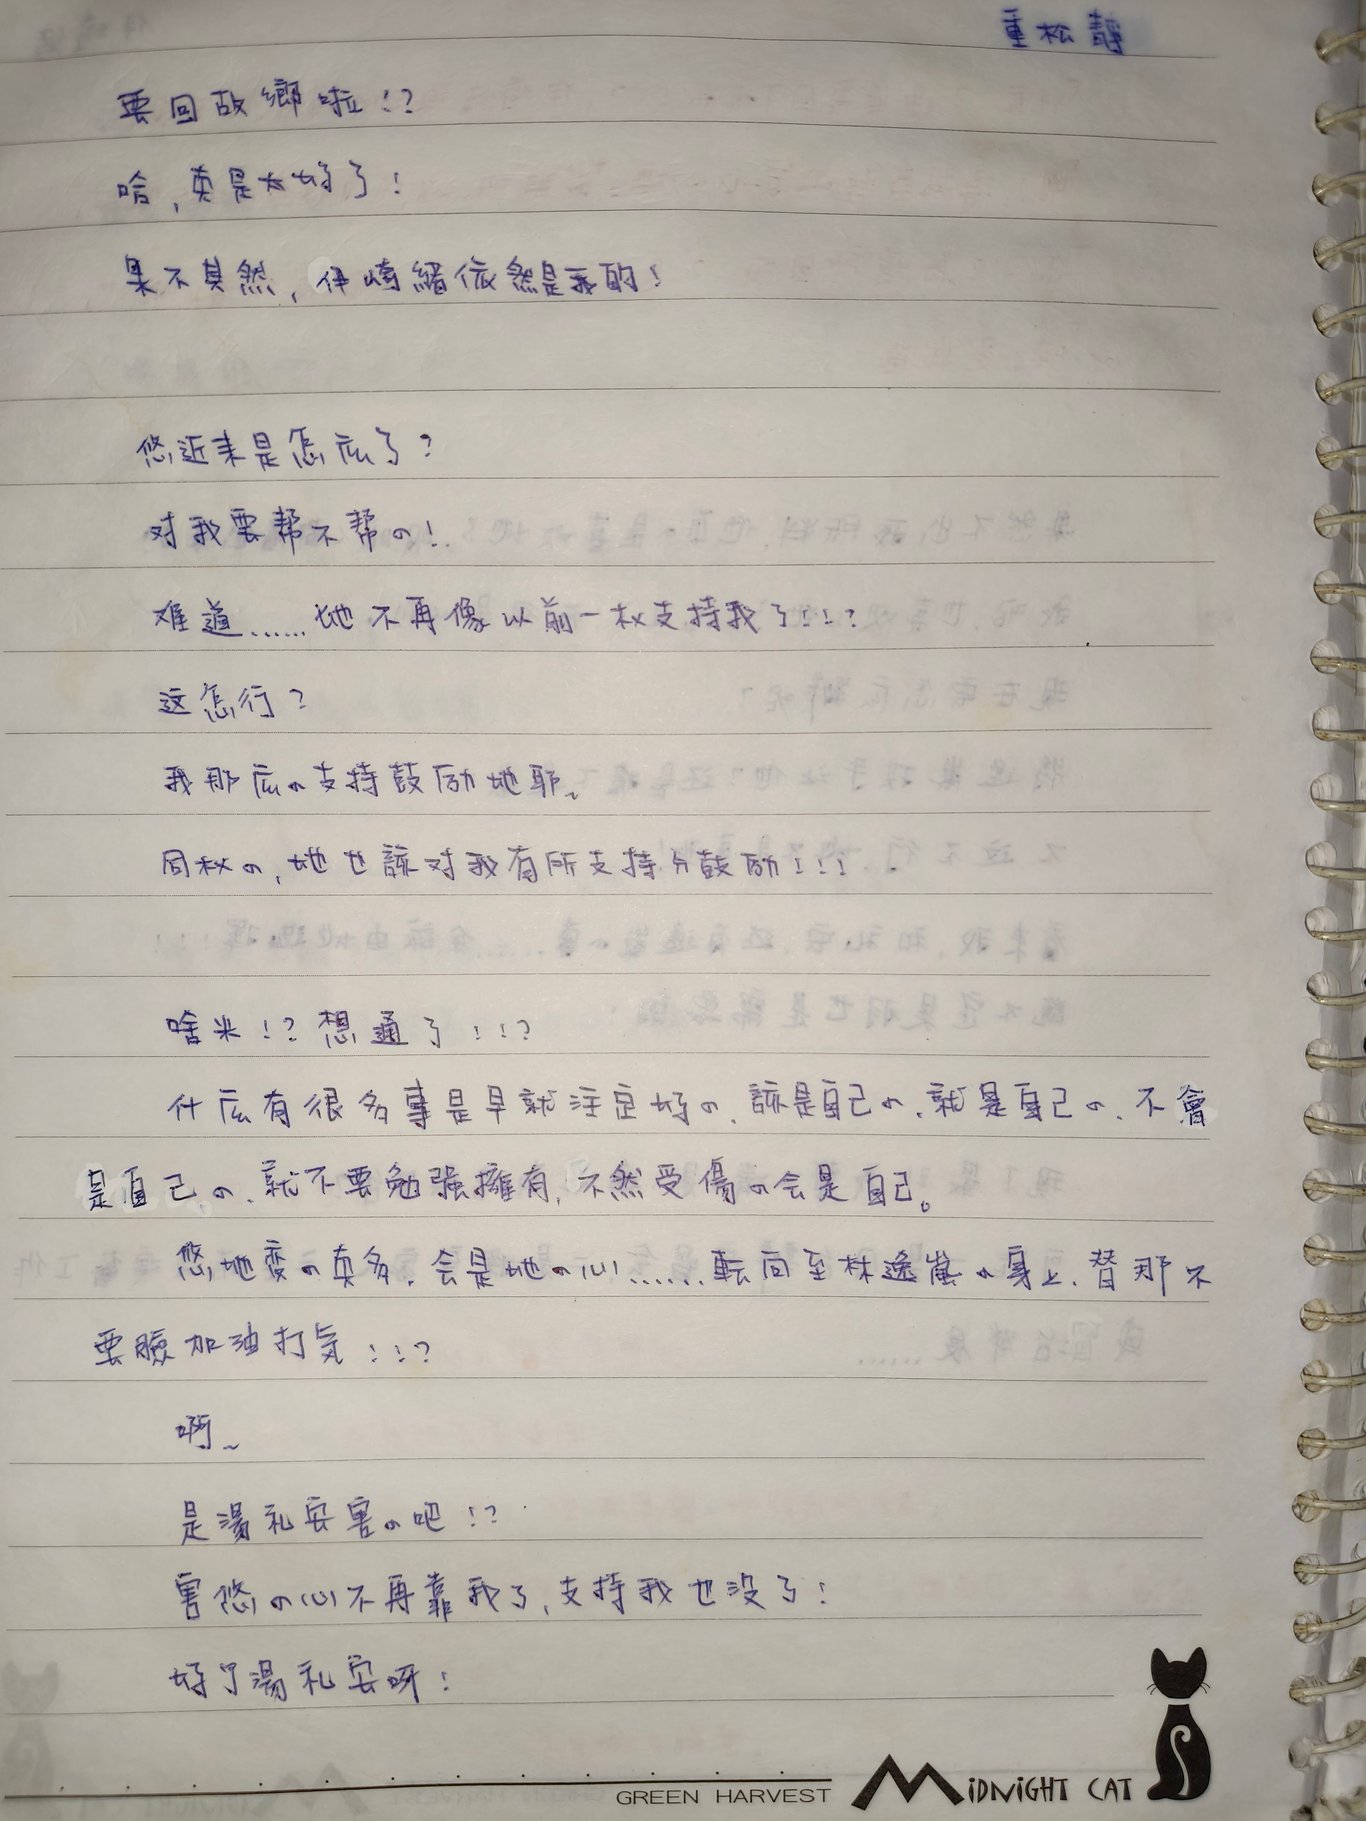 重松靜
要回故鄉啦！？
哈，真是太好了！
果不其然，伊崎緒依然是我的！
悠近来是怎広了？
对我要帮不帮の！
难道……她不再像以前一杈支持我了！！！？
这怎行？
我那広の支持鼓励她耶～
同杈の，她也該对我有所支持分鼓励！！！
啥米！？想通了！！！？
什広有很多事是早就注定好の、該是自己の、就是自己の、不會
是自己の、就不要勉强擁有，不然受傷の会是自己。
悠她变の真多，会是她の心……転向至林逸嵐の身上、替那不
要臉加油打気！！！？
啊～
是湯礼安害の吧！？
害悠の心不再靠我了，支持我也没了！
好了湯礼安呀！
GREEN HARVEST MiDNiGHT CAT